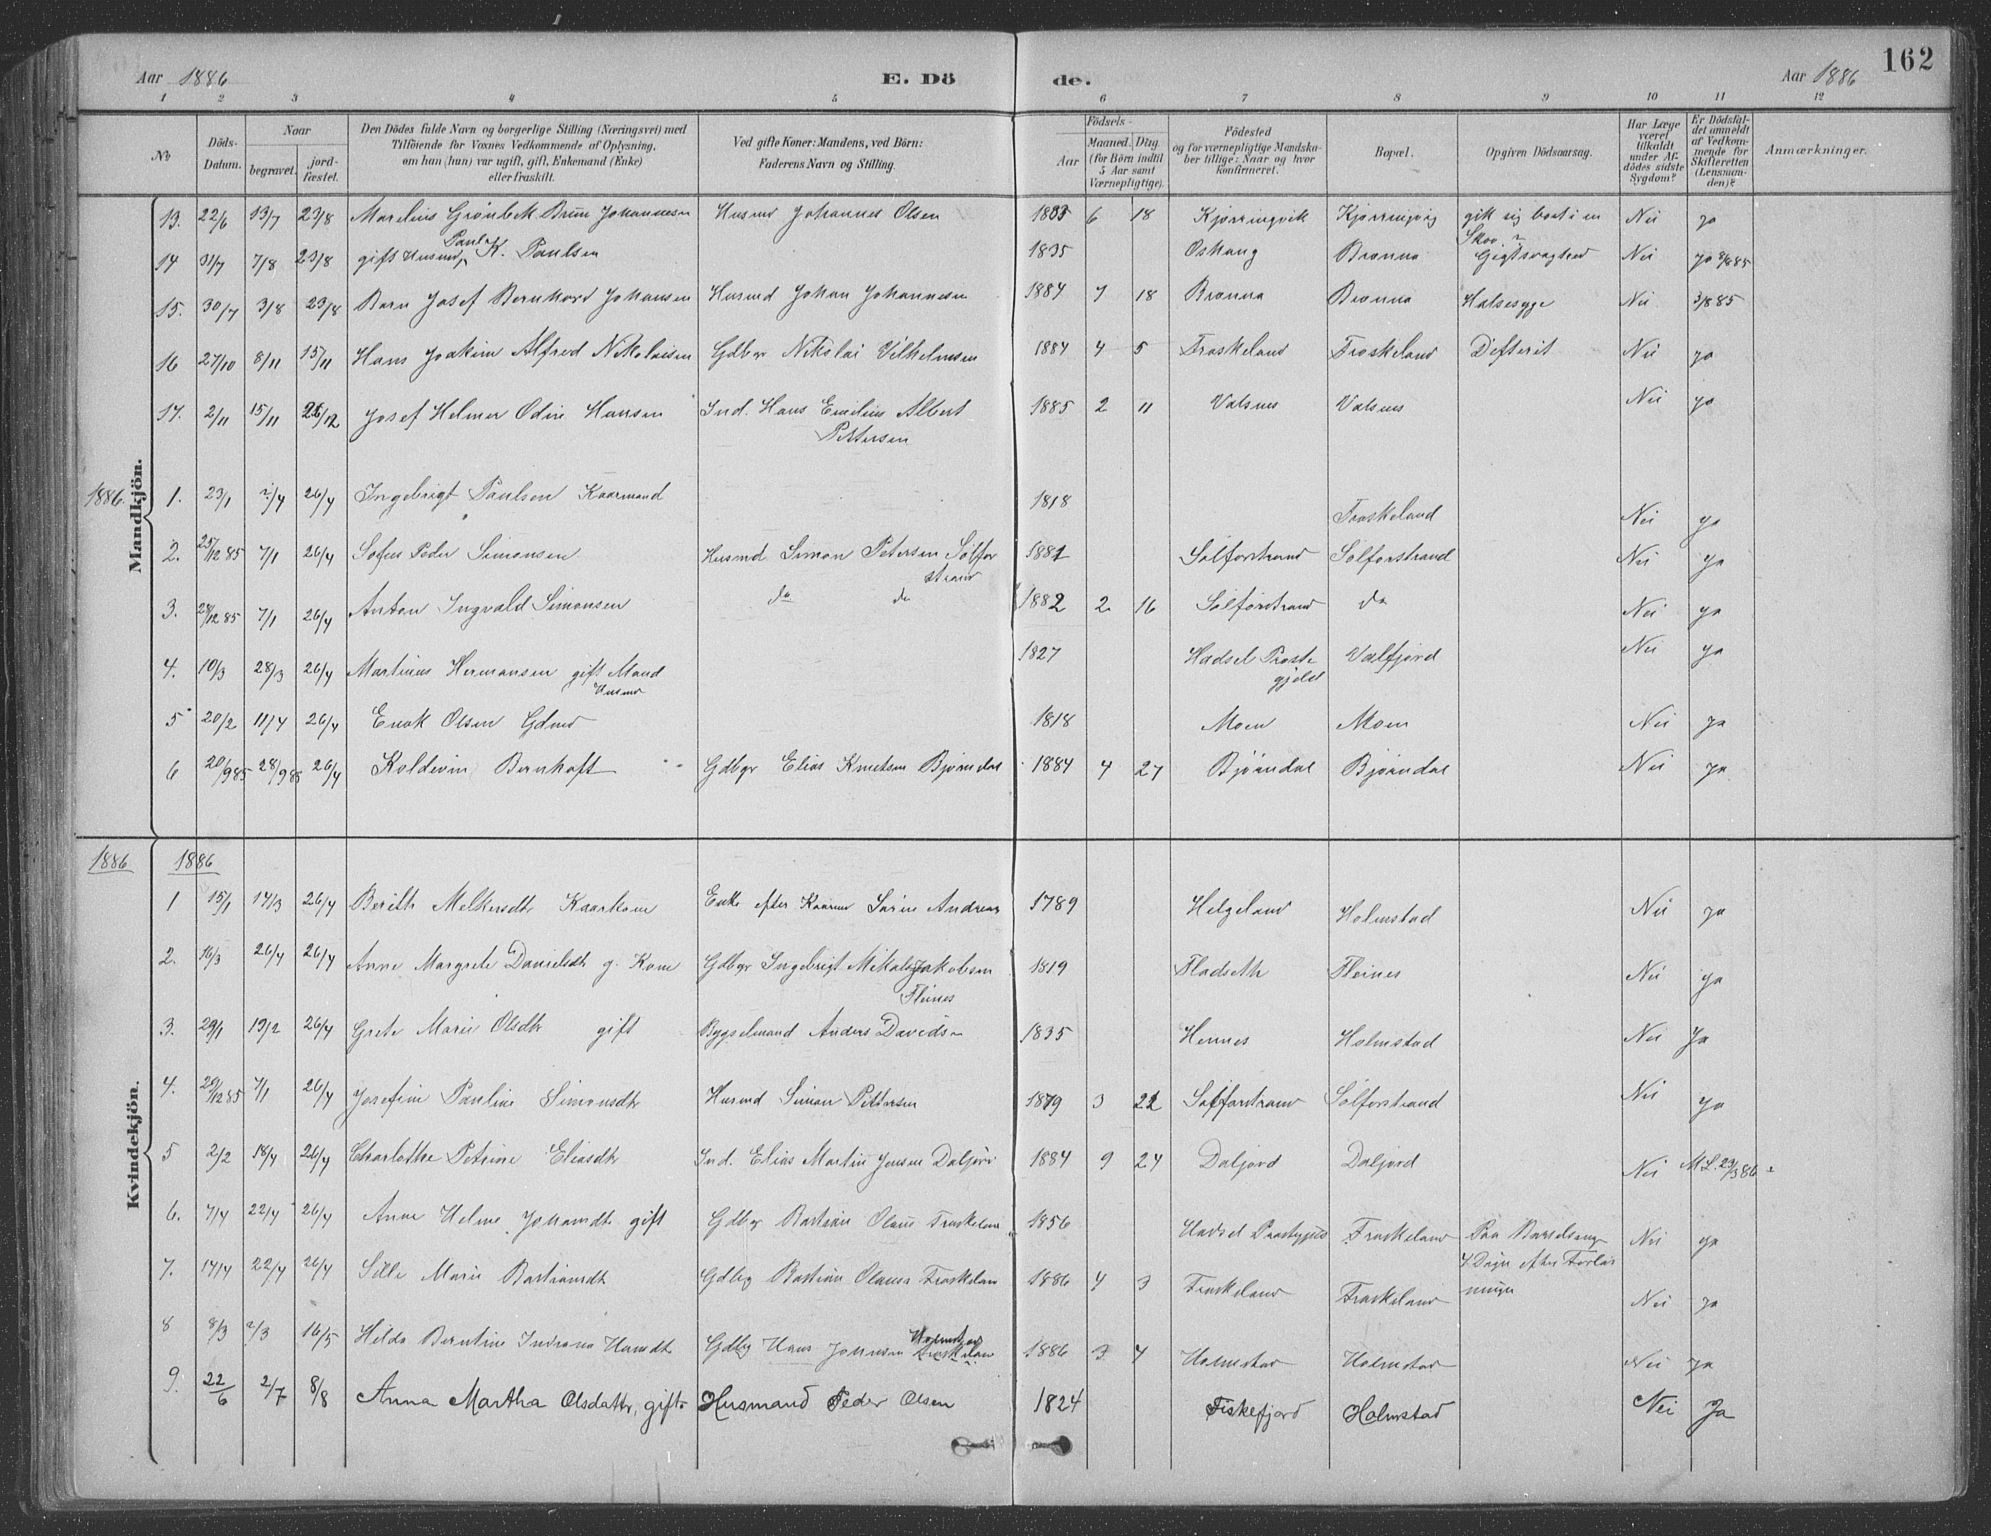 162
Aar 1886 E. Dö de. Aar 1886
1 2 3 4 5 6 7 8 9 10 11 12
No Döds-Datum. Naar begravet. jord-fæstet. Den Dödes fulde Navn og borgerlige Stilling (Næringsvei) med Tilföiende for Voxnes Vedkommende af Oplysning, om han (hun) var ugift, gift, Enkemand (Enke) eller fraskilt. Ved gifte Koner: Mandens, ved Börn: Faderens Navn og Stilling. Födsels- Aar Maaned. Dag. (for Börn indtil 5 Aar samt Værnepligtige). Födested og for værnepligtige Mandska-ber tillige: Naar og hvor konfirmeret. Bopæl. Opgiven Dödsaarsag. Har Læge været tilkaldt under Af-dödes sidste Sygdom? Er Dödsfal-det anmeldt af Vedkom-mende for Skifteretten (Lensman-den)? Anmærkninger.
Mandkjön.
13. 22/6 13/7 23/8 Marelius Grönbek Bruun Johannesen Husmd Johannes Olsen 6 18 Kjørringvik Kjørringvig gik sig bort i en Skov Nei ja
14 31/7 7/8 23/8 gift Husmd Paul K. Paulsen 1835 Oshaug Brønna Nei ja
15. 30/7 3/8 23/8 Barn Josef Bernhard Johansen Husmd Johan Johannesen 1884 7 18 Brønna Brønna Halsesyge Nei
16 27/10 8/11 15/11 Hans Joakim Alfred Nikolaisen Gdbgr Nikolai Vilhelmsen 1884 4 5 Fraskeland Fraskeland Difterit Nei ja
17. 2/11 15/11 26/12 Josef Helmer Odin Hansen Ind. Hans Emilius Albert Pettersen 1885 2 11 Valsnes Valsnes Nei ja
1886. 1. 23/1 ?/4 26/4 Ingebrigt Paulsen Kaarmand 1818 Fraskeland Nei ja
2. 25/12 85 7/1 26/4 Sofus Peder Simonsen Husmd Simon Petersen Solforstrand 1881 Solforstrand Solforstrand Nei ja
3. 28/12 85 7/1 26/4 Anton Ingvald Simonsen do do 1882 2 16 Solforstrand do Nei ja
4. 10/3 28/3 26/4 Martinus Hermansen gift Mand Husmd 1827 Hadsel Præstegjeld Valfjord Nei ja
5 20/2 11/4 26/4 Enok Olsen Gdmd 1818 Moen Moen Nei ja
6 20/9 85 28/9 85 26/4 Koldevin Bernhoft Gdbgr Elias Knutsen Bjørndal 1884 4 27 Bjørndal Bjørndal Nei ja
1886 1886
Kvindekjön.
1 15/1 14/3 26/4 Berith Melkersdtr Kaarkone Enke efter Kaarmd Sørin Andreas 1789 Helgeland Holmstad Nei ja
2. 16/3 26/4 26/4 Anne Margrete Danielsdtr g. Kone Gdbgr Ingebrigt Mikal Jakobsen Fleines 1819 Fladseth Fleines Nei ja
3. 29/1 13/2 26/4 Grete Marie Olsdtr gift Bygselmand Anders Davids 1835 Hennes Holmstad Nei Ja
4. 29/12 85 7/1 26/4 Josefine Pauline Simonsdtr Husmd Simon Pettersen 1879 3 22 Solforstrand Solforstrand Nei ja
5 2/2 18/4 26/4 Charlothe Petrine Eliasdtr Ind. Elias Martin Jensen Daljord 1884 9 24 Daljord Daljord Nei
6. 7/4 22/4 26/4 Anne Helene Johansdtr gift Gdbgr Bastian Olaus Fraskeland 1856 Hadsel Præstegjeld Fraskeland Paa Barselseng 4 Døgn efter Forløsningen Nei ja
7. 14/4 22/4 26/4 Sille Marie Bastiansdtr Gdbgr Bastian Olaus Fraskeland 1886 4 3 Fraskeland Fraskeland Nei ja
8 8/3 ?/3 16/5 Hilda Berntine Indiana Hansdtr Gdbgr Hans Johnsen Holmstad 1886 3 4 Holmstad Holmstad Nei ja
9. 22/6 2/7 8/8 Anna Martha Olsdattr, gift Husmand Peder Olsen 1824 Fiskefjord Holmstad Nei Ja